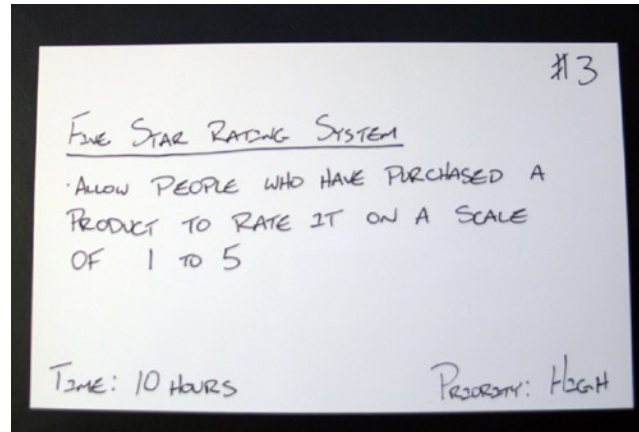 #3
FIVE STAR RATING SYSTEM
· ALLOW PEOPLE WHO HAVE PURCHASED A
PRODUCT TO RATE IT ON A SCALE
OF 1 TO 5
TIME: 10 HOURS PRIORITY: HIGH